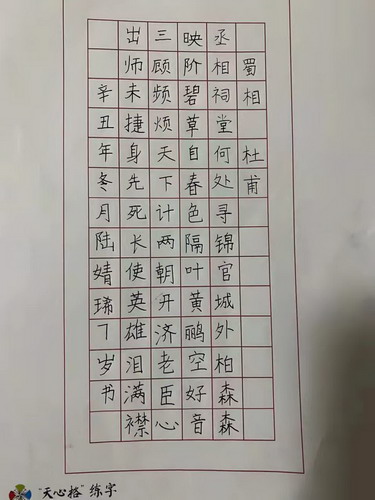 蜀相 杜甫
丞相祠堂何处寻锦官城外柏森森
映阶碧草自春色隔叶黄鹂空好音
三顾频烦天下计两朝开济老臣心
出师未捷身先死长使英雄泪满襟
辛丑年冬月陆婧琋7岁书
"天心格"练字